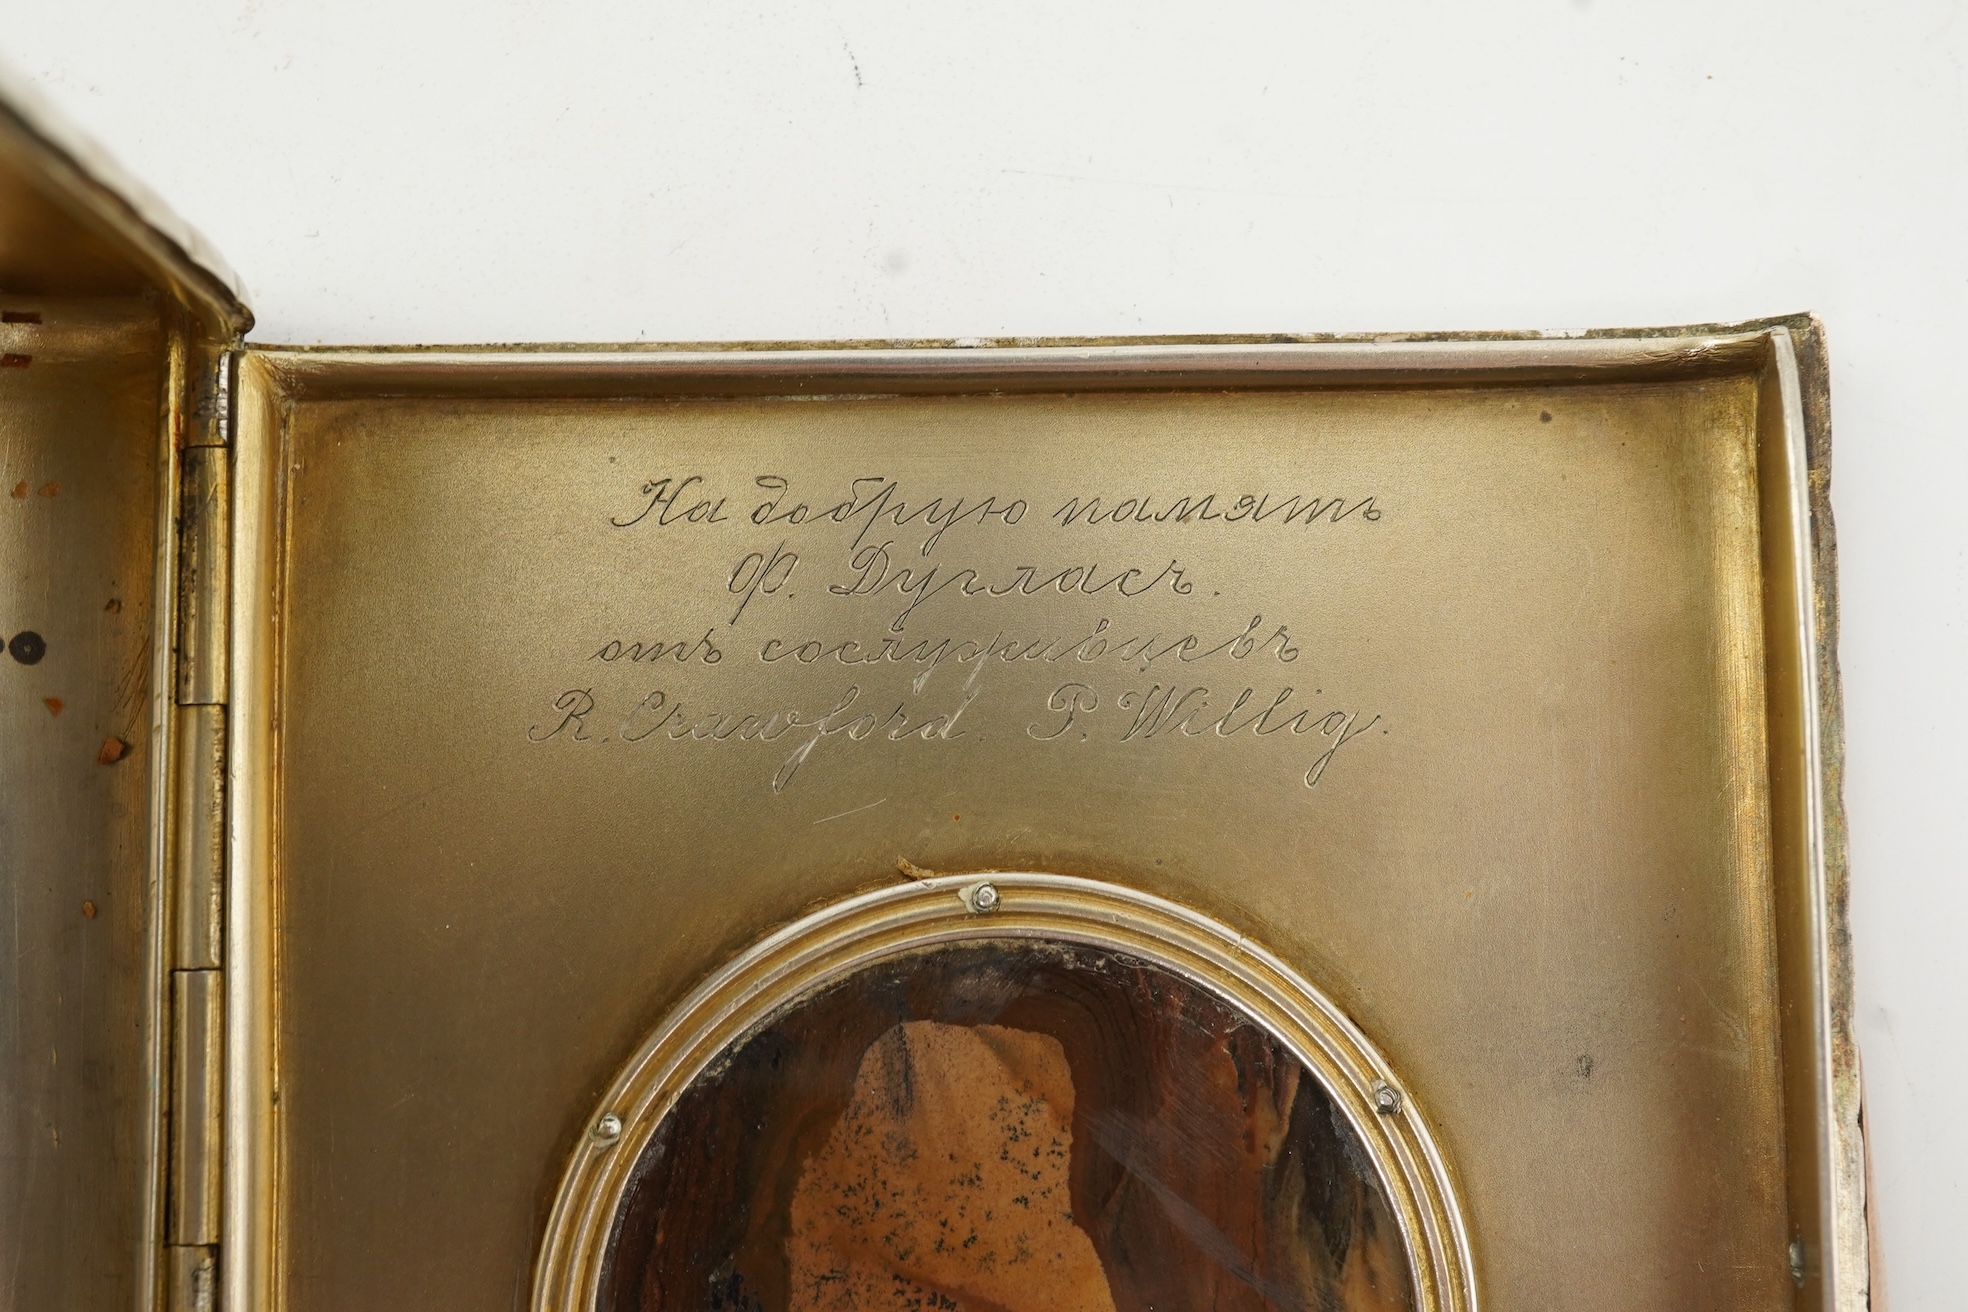 На добрую память
Ф. Дугласъ.
отъ сослуживцевъ
R. Crawford. P. Willig.